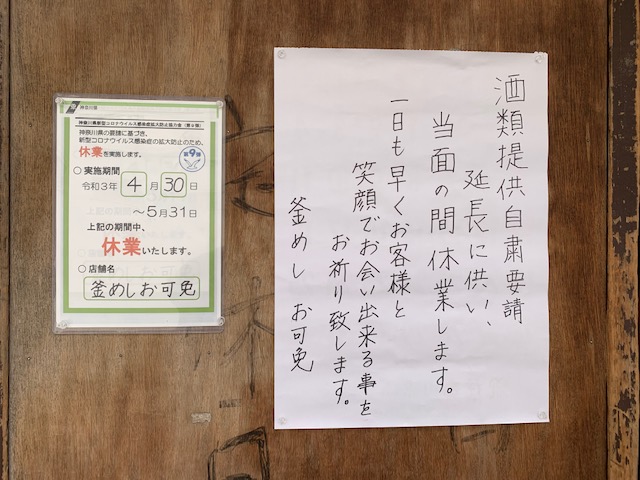 神奈川県
神奈川県新型コロナウイルス感染症拡大防止協力金（第９弾）
神奈川県の要請に基づき、
新型コロナウイルス感染症の拡大防止のため、
休業を実施します。
第9弾
○ 実施期間
令和３年 4 月 30 日
～５月３１日
上記の期間中、
休業いたします。
○ 店舗名
釜めしお可免
酒類提供自粛要請
延長に供い、
当面の間休業します。
一日も早くお客様と
笑顔でお会い出来る事を
お祈り致します。
釜めし お可免